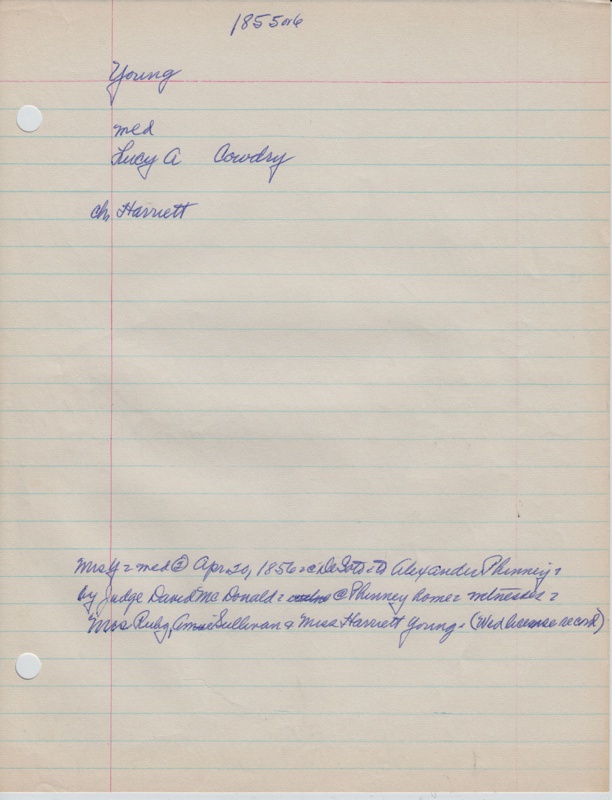 1855 or 6
Young
med
Lucy A Cowdry
ch. Harriett
Mrs Y = med ② Apr. 20, 1856 = @ DeSoto = to Alexander Phinney =
by Judge David McDonald = @ Phinney home = witnesses =
Mrs Ruby, Sullivan & Miss Harriett Young = (Wed license record)